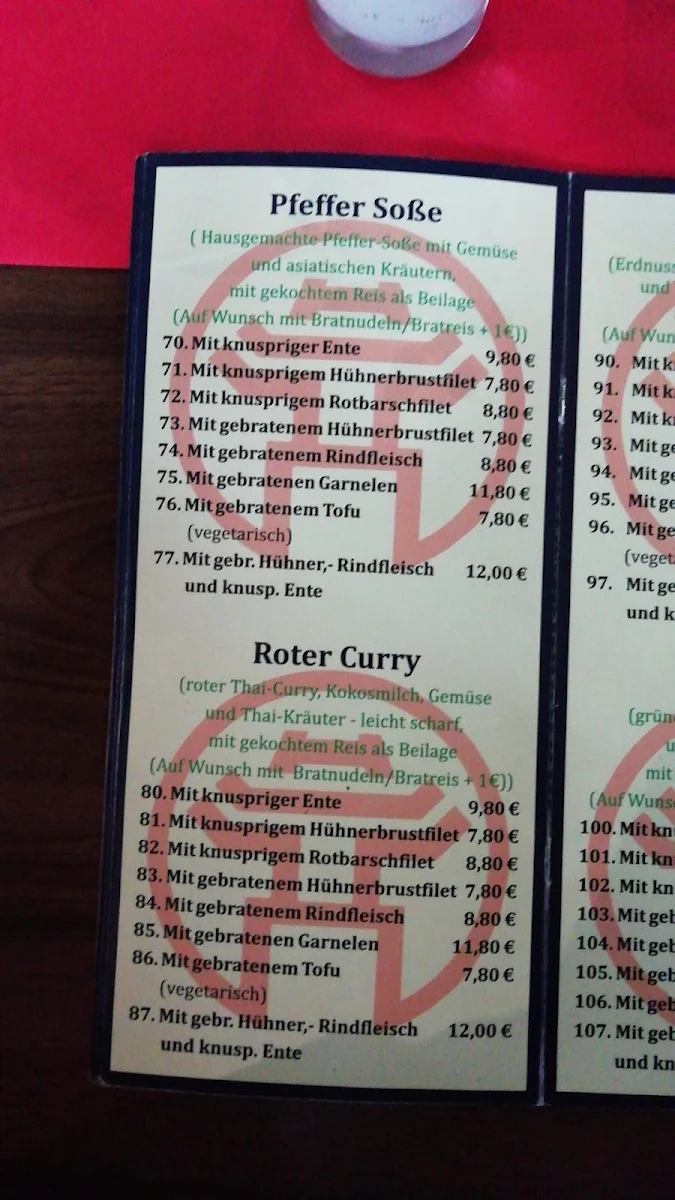 Pfeffer Soße
( Hausgemachte Pfeffer-Soße mit Gemüse
und asiatischen Kräutern,
mit gekochtem Reis als Beilage
(Auf Wunsch mit Bratnudeln/Bratreis + 1€))
70. Mit knuspriger Ente 9,80 €
71. Mit knusprigem Hühnerbrustfilet 7,80 €
72. Mit knusprigem Rotbarschfilet 8,80 €
73. Mit gebratenem Hühnerbrustfilet 7,80 €
74. Mit gebratenem Rindfleisch 8,80 €
75. Mit gebratenen Garnelen 11,80 €
76. Mit gebratenem Tofu 7,80 €
(vegetarisch)
77. Mit gebr. Hühner,- Rindfleisch 12,00 €
und knusp. Ente
Roter Curry
(roter Thai-Curry, Kokosmilch, Gemüse
und Thai-Kräuter - leicht scharf,
mit gekochtem Reis als Beilage
(Auf Wunsch mit Bratnudeln/Bratreis + 1€))
80. Mit knuspriger Ente 9,80 €
81. Mit knusprigem Hühnerbrustfilet 7,80 €
82. Mit knusprigem Rotbarschfilet 8,80 €
83. Mit gebratenem Hühnerbrustfilet 7,80 €
84. Mit gebratenem Rindfleisch 8,80 €
85. Mit gebratenen Garnelen 11,80 €
86. Mit gebratenem Tofu 7,80 €
(vegetarisch)
87. Mit gebr. Hühner,- Rindfleisch 12,00 €
und knusp. Ente
(Erdnuss
und
(Auf Wun
90. Mit k
91. Mit k
92. Mit k
93. Mit ge
94. Mit ge
95. Mit ge
96. Mit ge
(veget
97. Mit ge
und k
(grün
u
mit
(Auf Wuns
100. Mit kn
101. Mit kn
102. Mit kn
103. Mit geb
104. Mit geb
105. Mit geb
106. Mit geb
107. Mit geb
und kn